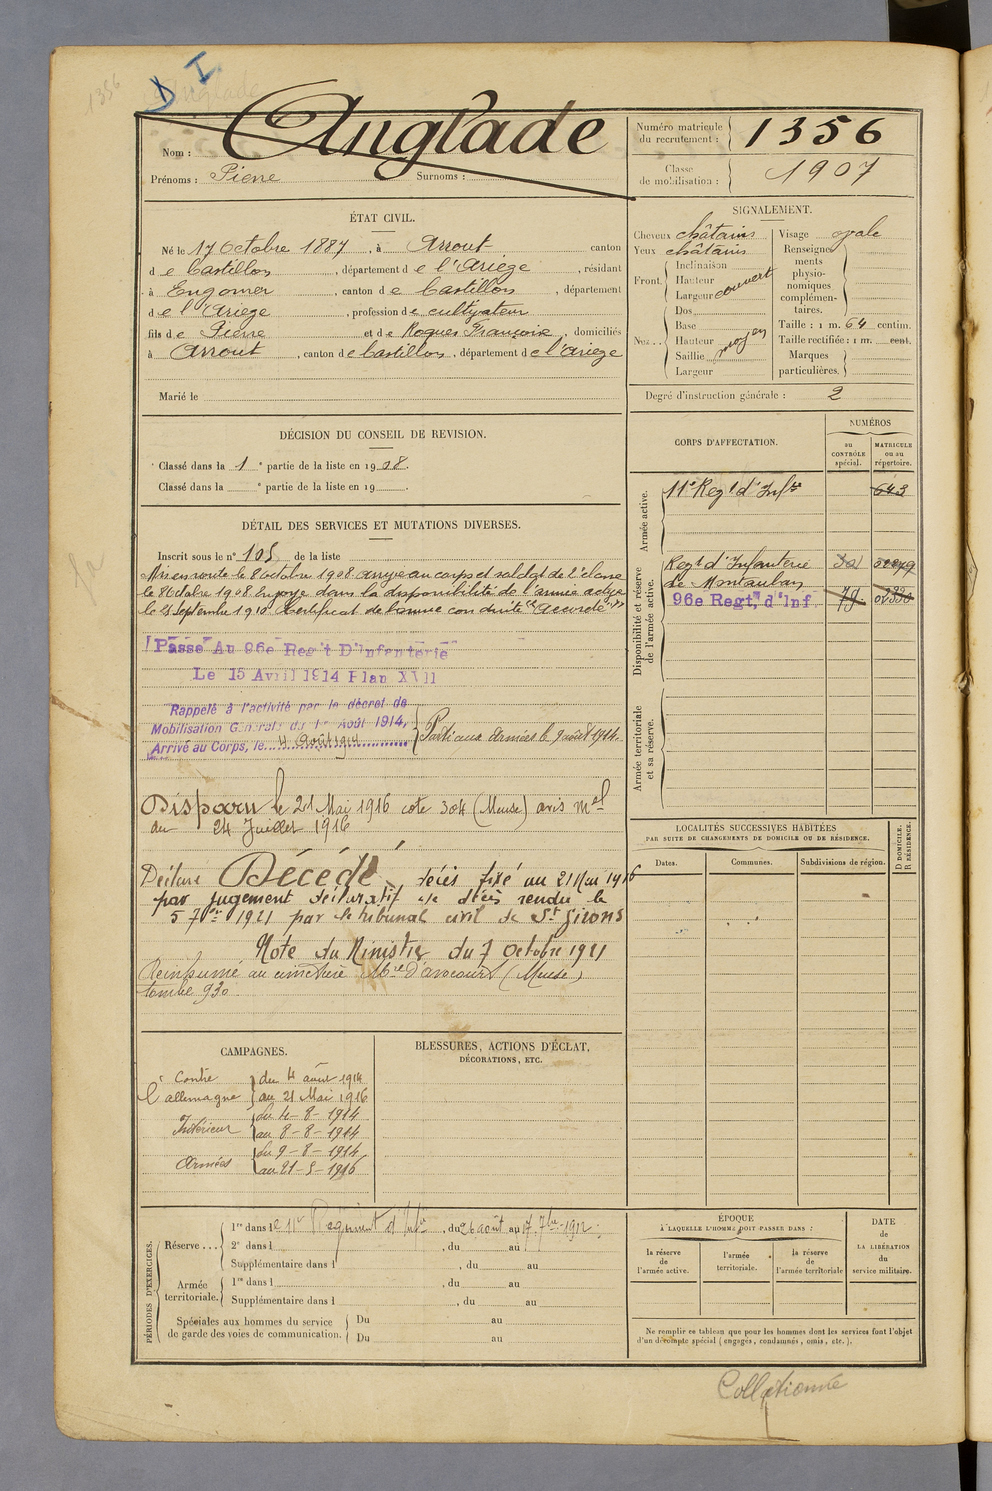 1356
D I
Anglade
Nom : Anglade
Prénoms : Pierre Surnoms :
Numéro matricule du recrutement : 1356
Classe de mobilisation : 1907
ÉTAT CIVIL.
Né le 17 Octobre 1887, à Arrout canton
de Castillon, département de l'Ariège, résidant
à Engomer, canton de Castillon, département
de l'Ariège, profession de cultivateur
fils de Pierre et de Roques Françoise, domiciliés
à Arrout, canton de Castillon, département de l'Ariège
Marié le
SIGNALEMENT.
Cheveux châtains
Yeux châtains
Front. Inclinaison
Hauteur
Largeur couvert
Nez... Dos
Base
Hauteur
Saillie moyen
Largeur
Visage ovale
Renseignements physionomiques complémentaires.
Taille : 1 m. 64 centim.
Taille rectifiée : 1 m. cent.
Marques particulières.
Degré d'instruction générale : 2
DÉCISION DU CONSEIL DE REVISION.
Classé dans la 1e partie de la liste en 1908.
Classé dans la e partie de la liste en 19 .
DÉTAIL DES SERVICES ET MUTATIONS DIVERSES.
Inscrit sous le n° 105 de la liste
Mis en route le 8 octobre 1908 arrivé au corps et soldat de 2e classe
le 8 Octobre 1908 Envoyé dans la disponibilité de l'armée active
le 25 Septembre 1910 Certificat de bonne conduite "Accordé"
Passe Au 96e Reg't D'Infanterie
Le 15 Avril 1914 Plan XVII
Rappelé à l'activité par le décret de
Mobilisation Générale du 1er Août 1914.
Arrivé au Corps, le 4 Août 1914
Parti aux armées le 9 août 1914.
Disparu le 21 Mai 1916 cote 304 (Meuse) avis mel
du 24 Juillet 1916
Déclaré Décédé, décès fixé au 21 Mai 1916
par jugement déclaratif de décès rendu le
5 7bre 1921 par le tribunal civil de St Girons
Note du Ministre du 7 Octobre 1921
Réinhumé au cimetière Mre d'avocourt (Meuse)
tombe 930.
CORPS D'AFFECTATION.
NUMÉROS
au CONTRÔLE spécial.
MATRICULE ou au répertoire.
Armée active.
11e Regt d'Infrie 643
Disponibilité et réserve de l'armée active.
Regt d'Infanterie
de Montauban
96e Regt, d'Inf
Armée territoriale et sa réserve.
LOCALITÉS SUCCESSIVES HABITÉES
PAR SUITE DE CHANGEMENTS DE DOMICILE OU DE RÉSIDENCE.
Dates. Communes. Subdivisions de région.
D DOMICILE. R RÉSIDENCE.
CAMPAGNES.
Contre l'allemagne
du 4 août 1914
au 21 Mai 1916
Intérieur
du 4-8-1914
au 8-8-1914
Armées
du 9-8-1914
au 21-5-1916
BLESSURES, ACTIONS D'ÉCLAT,
DÉCORATIONS, ETC.
PÉRIODES D'EXERCICES.
Réserve... 1re dans le 11e Régiment d'Infie, du 26 août au 17 7bre 1912.
2e dans l , du au
Supplémentaire dans l , du au
Armée territoriale. 1re dans l , du au
Supplémentaire dans l , du au
Spéciales aux hommes du service de garde des voies de communication. Du au
Du au
ÉPOQUE
À LAQUELLE L'HOMME DOIT PASSER DANS :
la réserve de l'armée active.
l'armée territoriale.
la réserve de l'armée territoriale
DATE de LA LIBÉRATION du service militaire.
Ne remplir ce tableau que pour les hommes dont les services font l'objet
d'un décompte spécial (engagés, condamnés, omis, etc.).
Collationné